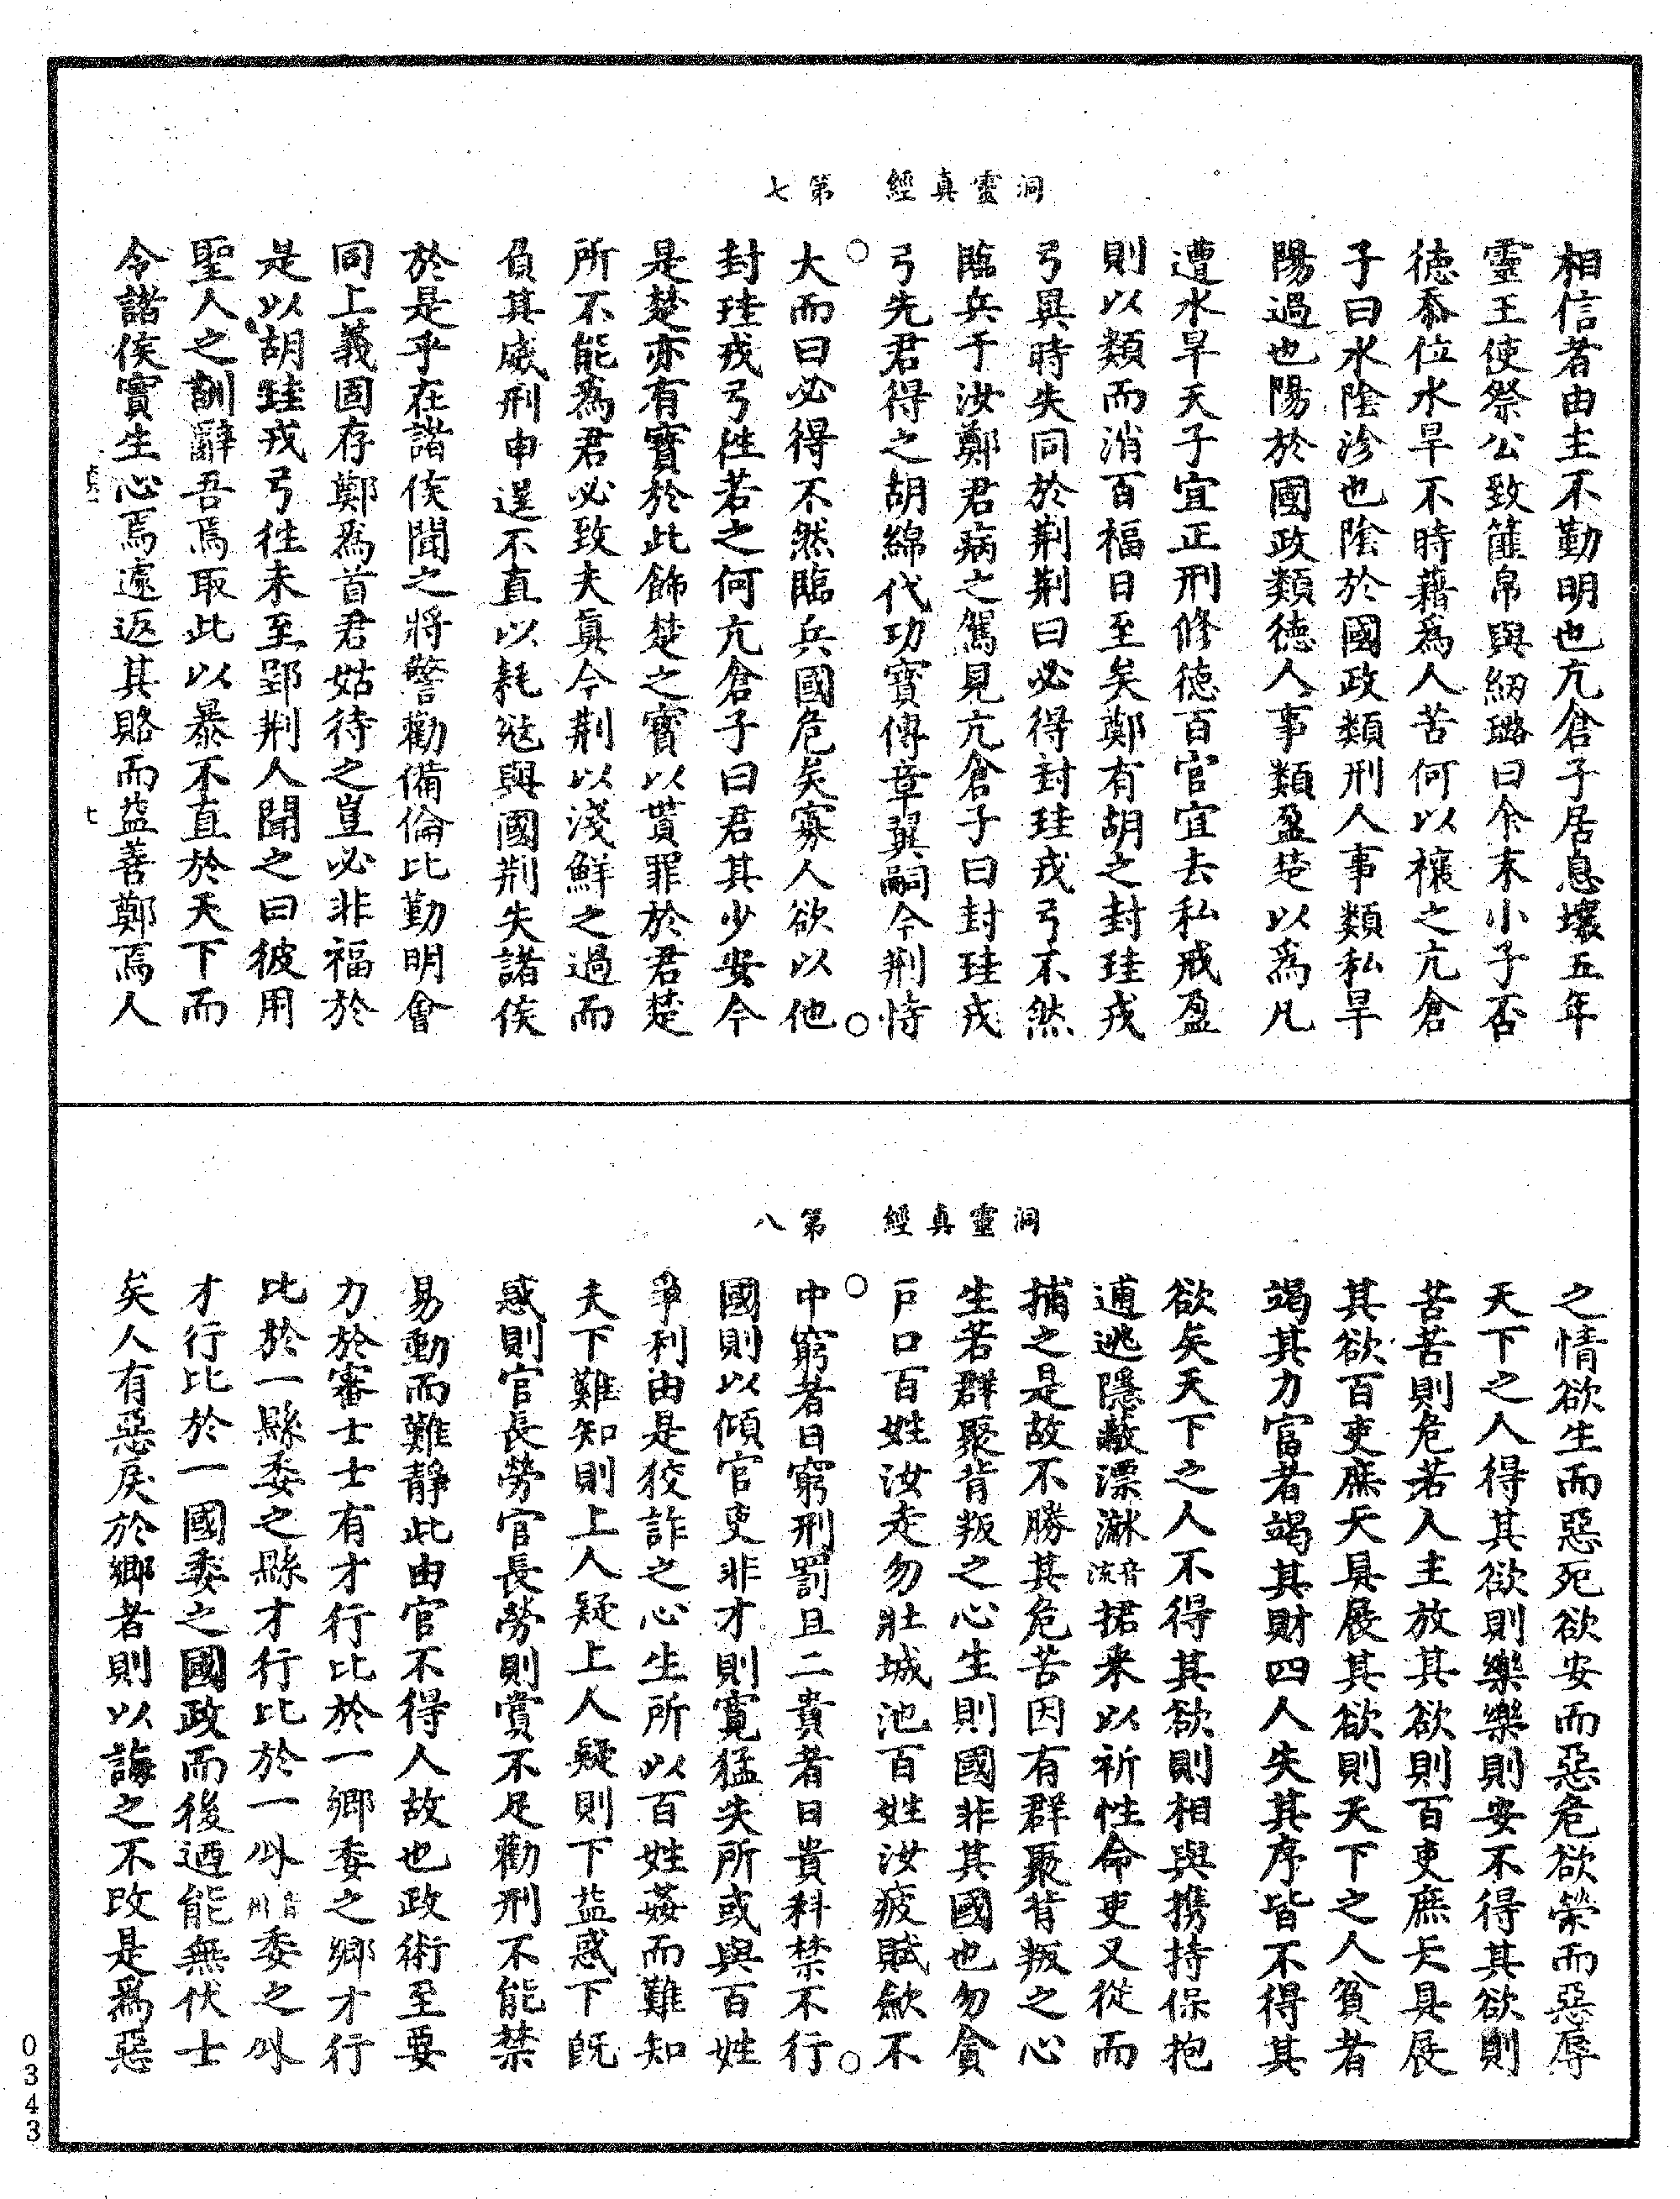 洞靈真經 第七
相信者由主不勤明也亢倉子居息壤五年
靈王使祭公致篚帛與紉璐曰余末小子否
德忝位水旱不時藉爲人苦何以禳之亢倉
子曰水陰沴也陰於國政類刑人事類私旱
陽過也陽於國政類德人事類盈楚以爲凡
遭水旱天子宜正刑修德百官宜去私戒盈
則以類而消百福日至矣鄭有胡之封珪戎
弓異時失同於荆荆曰必得封珪戎弓不然
臨兵于汝鄭君病之駕見亢倉子曰封珪戎
弓先君得之胡綿代功寶傳章翼嗣今荆恃
大而曰必得不然臨兵國危矣寡人欲以他
封珪戎弓往若之何亢倉子曰君其少安今
是楚亦有寶於此飾楚之寶以貰罪於君楚
所不能爲君必致夫真今荆以淺鮮之過而
負其威刑申逞不直以耗𢗏與國荆失諸侯
於是乎在諸侯聞之將警勸備倫比勤明會
同上義固存鄭爲首君姑待之豈必非福於
是以胡珪戎弓往未至郢荆人聞之曰彼用
聖人之訓辭吾焉取此以暴不直於天下而
令諸侯實生心焉遽返其賂而益善鄭焉人
七
洞靈真經 第八
之情欲生而惡死欲安而惡危欲榮而惡辱
天下之人得其欲則樂樂則安不得其欲則
苦苦則危若人主放其欲則百吏庶夫具展
其欲百吏庶夫具展其欲則天下之人貧者
竭其力富者竭其財四人失其序皆不得其
欲矣天下之人不得其欲則相與携持保抱
逋逃隱蔽漂淋音流捃來以祈性命吏又從而
捕之是故不勝其危苦因有群聚背叛之心
生若群聚背叛之心生則國非其國也勿貪
戶口百姓汝走勿壯城池百姓汝疲賦歛不
中窮者日窮刑罰且二貴者日貴科禁不行
國則以傾官吏非才則寬猛失所或與百姓
爭利由是狡詐之心生所以百姓姦而難知
夫下難知則上人疑上人疑則下益惑下既
惑則官長勞官長勞則賞不足勸刑不能禁
易動而難靜此由官不得人故也政術至要
力於審士士有才行比於一鄉委之鄉才行
比於一縣委之縣才行比於一𠈋音州委之𠈋
才行比於一國委之國政而後迺能無伏士
矣人有惡戾於鄉者則以誨之不改是爲惡
0343